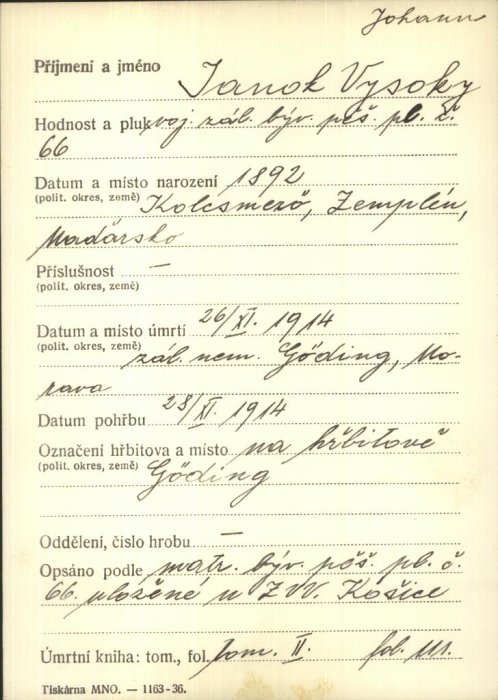 Johann
Příjmení a jméno Janok Vysoky
Hodnost a pluk voj. zál. býv. pěš. pl. č.
66
Datum a místo narození 1892
(polit. okres, země) Kolcsmező, Zemplén,
Maďarsko
Příslušnost —
(polit. okres, země)
Datum a místo úmrtí 26/XI. 1914
(polit. okres, země) zál. nem. Göding, Mo-
rava
Datum pohřbu 28/XI. 1914
Označení hřbitova a místo na hřbitově
(polit. okres, země) Göding
Oddělení, číslo hrobu —
Opsáno podle matr. býv. pěš. pl. č.
66. uložené u ZVV. Košice
Úmrtní kniha: tom., fol. tom. II. fol.
Tiskárna MNO. — 1163-36.